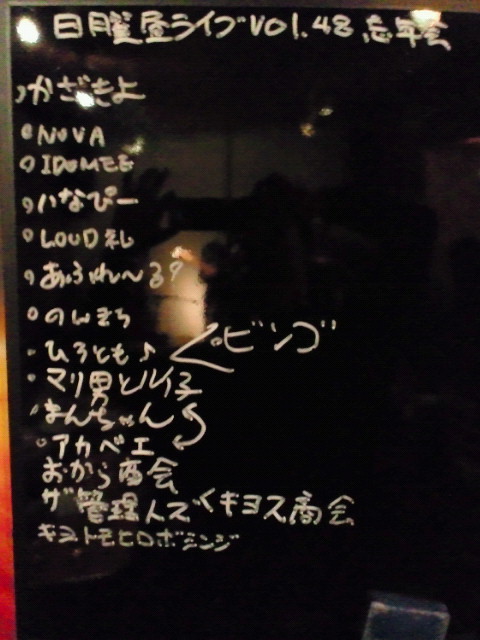 日月曜屋ライブVOL.48 忘年会
かざきよ
NOVA
IDOMEE
いなぴー
LOUD礼
あふれ〜る?
のんきち
ビンゴ
ひろとも♪
マリ男とルイ子
まんちゃん
アカベエ
おから商会
ザ管理人ズ<ギヨス商会
キヨトモヒロボシンジ